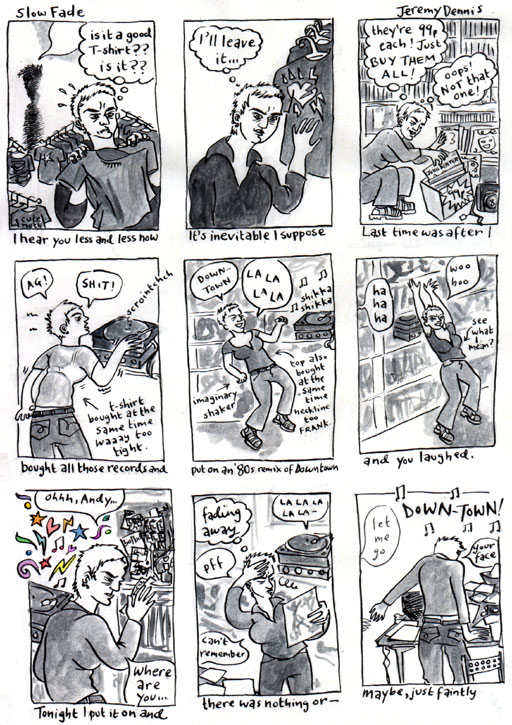 Slow Fade
Jeremy Dennis
is it a good
T-shirt??
is it??
cute
moth
I hear you less and less now
I'll leave
it...
It's inevitable I suppose
they're 99p
each! Just
BUY THEM
ALL!
oops!
NOT that
one!
Last time was after I
AG!
SHIT!
t-shirt
bought at the
same time
waaay too
tight.
bought all those records and
DOWN-
TOWN
LA LA
LA LA
shikka
shikka
imaginary
shaker
top also
bought
at the
same
time
neckline
too
FRANK.
put on an '80s remix of Downtown
ha
ha
ha
woo
hoo
see
what I
mean?
and you laughed.
Ohhh, Andy...
Where
are
you...
Tonight I put it on and
fading
away
LA LA LA
LA LA-
pff
can't
remember
there was nothing or —
DOWN-TOWN!
let
me
go
your
face
maybe, just faintly